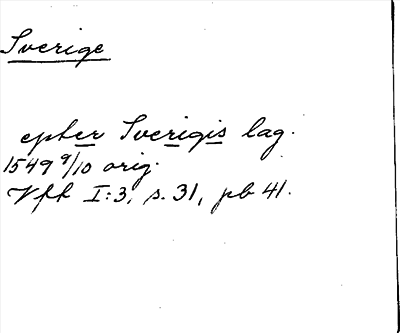 Sverige
epter Sverigis lag.
1549 9/10 orig.
Vfh I:3, s. 31, pb 41.